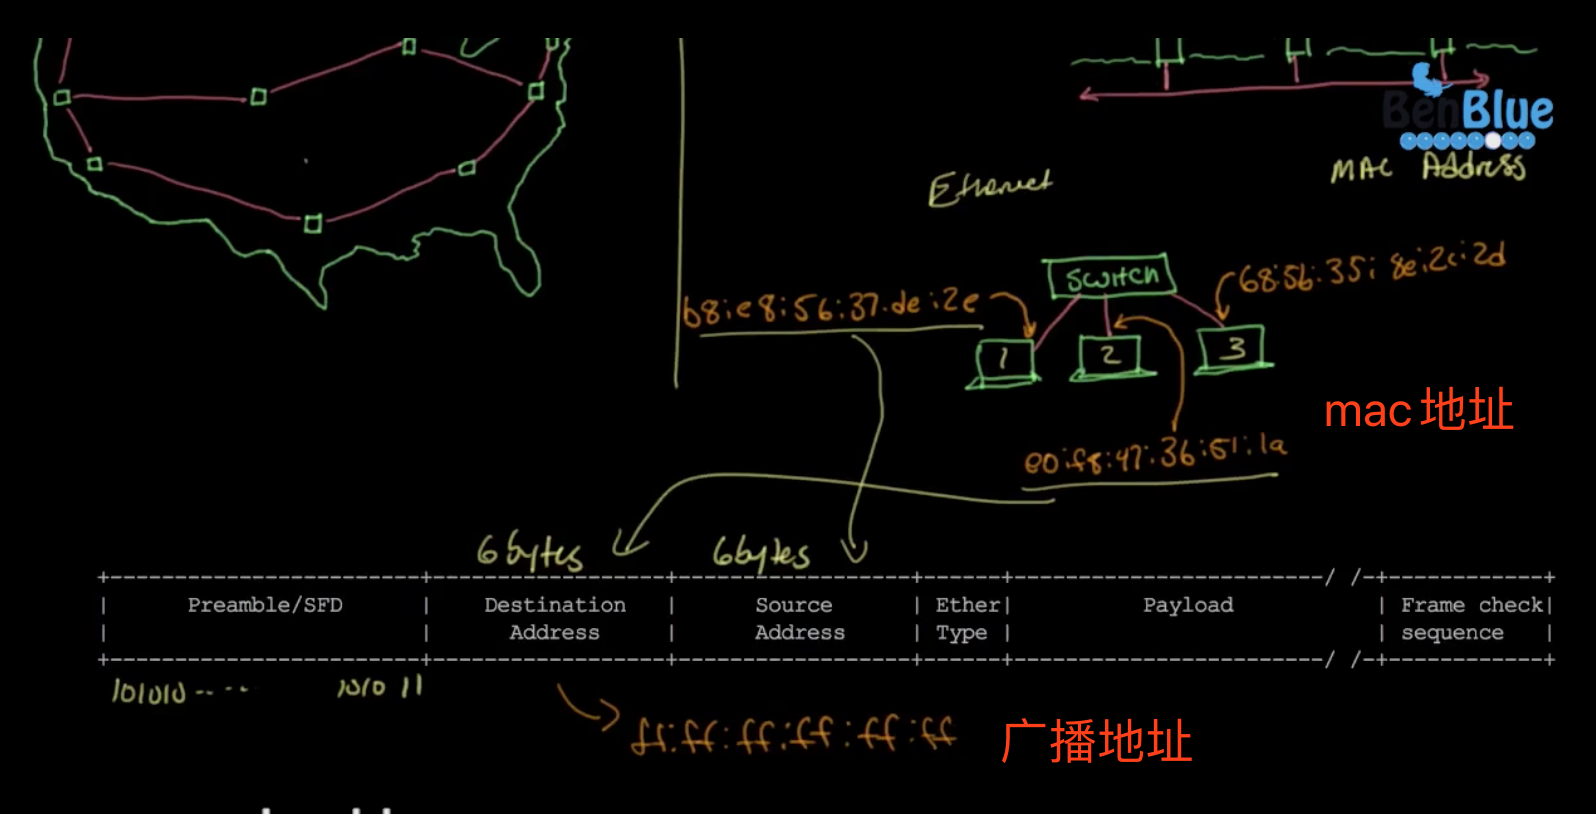 BenBlue
MAC Address
Ethernet
switch
68:5b:35:8e:2c:2d
b8:e8:56:37:de:2e
1
2
3
mac地址
e0:f8:47:36:51:1a
6 bytes
6 bytes
Preamble/SFD
Destination Address
Source Address
Ether Type
Payload
Frame check sequence
101010----
1010 11
ff:ff:ff:ff:ff:ff
广播地址